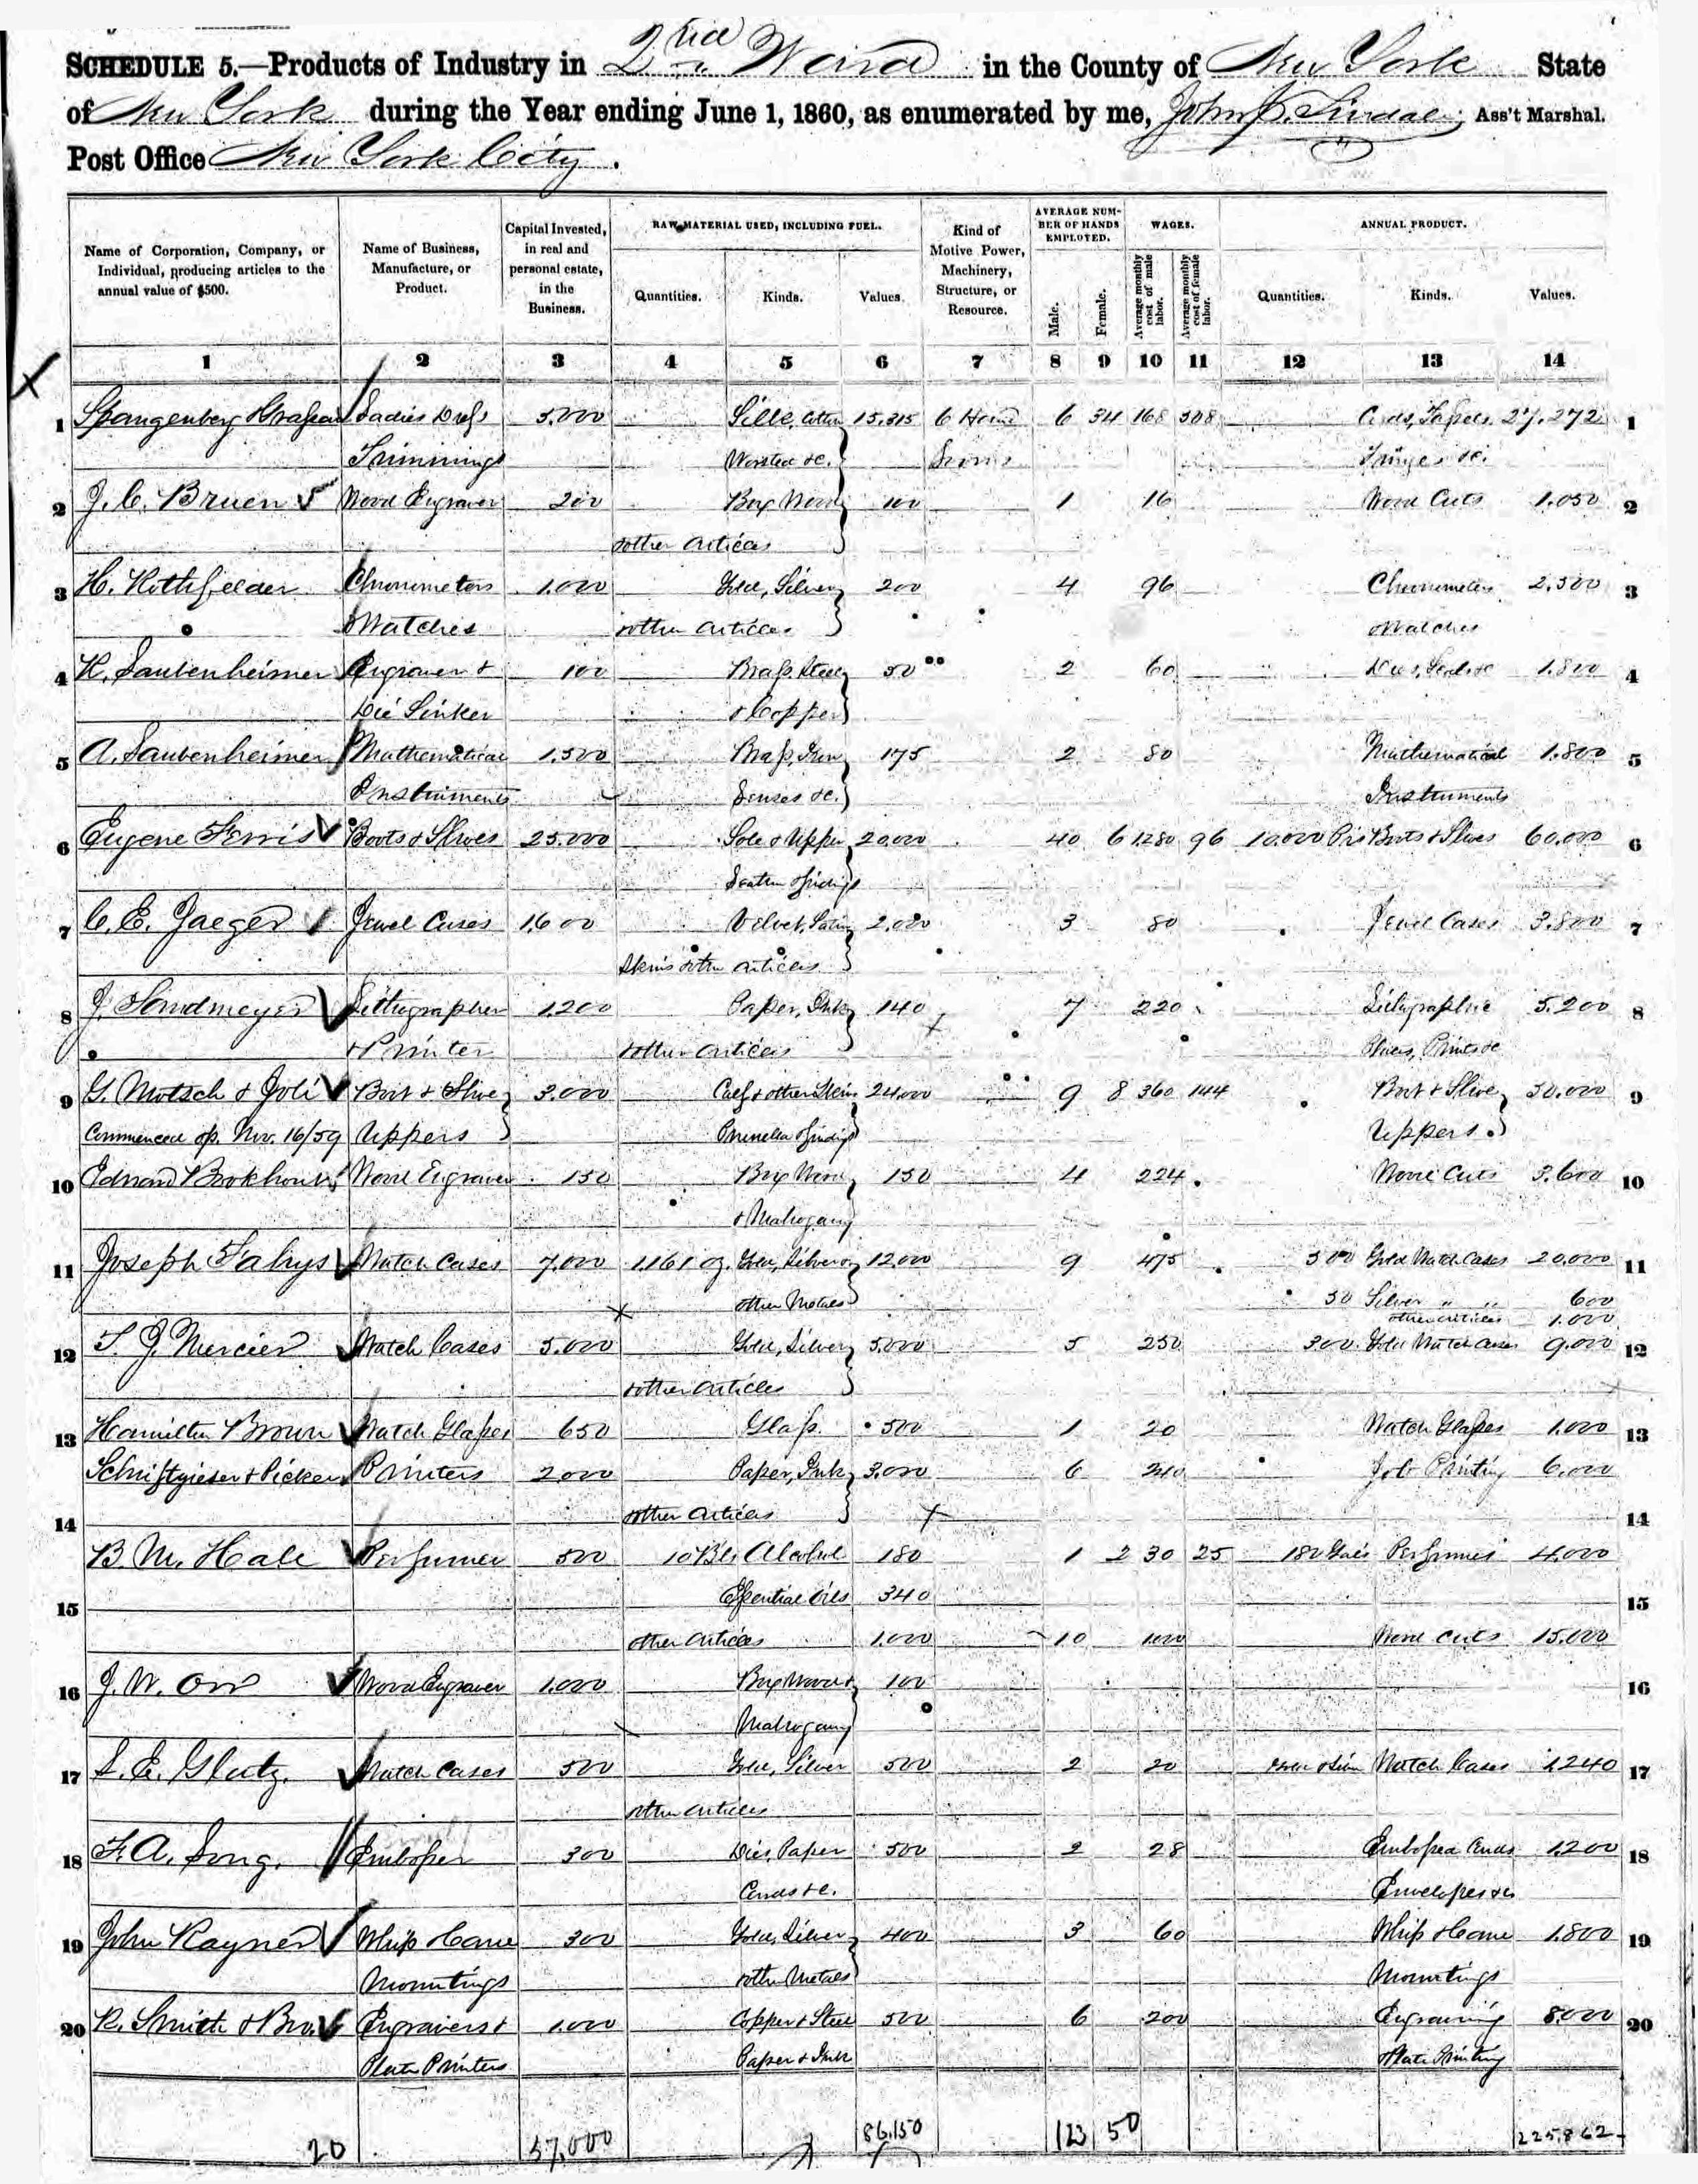 SCHEDULE 5.—Products of Industry in 2nd Ward in the County of New York State
of New York during the Year ending June 1, 1860, as enumerated by me, Ass't Marshal.
Post Office New York City.
Name of Corporation, Company, or Individual, producing articles to the annual value of $500.
Name of Business, Manufacture, or Product.
Capital Invested, in real and personal estate, in the Business.
RAW MATERIAL USED, INCLUDING FUEL.
Quantities. Kinds. Values.
Kind of Motive Power, Machinery, Structure, or Resource.
AVERAGE NUMBER OF HANDS EMPLOYED.
Male. Female.
WAGES.
Average monthly cost of male labor. Average monthly cost of female labor.
ANNUAL PRODUCT.
Quantities. Kinds. Values.
1 2 3 4 5 6 7 8 9 10 11 12 13 14
1 Spangenberg Ladies Dress 5.000 15.315 6 Hand 6 34 168 508 Cords, Tassels 27.272 1
Trimmings Worsted &c. Looms Fringes &c.
2 J. C. Bruen Wood Engraver 200 Box Wood 100 1 16 Wood Cuts 1.050 2
& other articles
3 H. Chronometers 1.000 Gold, Silver 200 4 96 Chronometers 2.500 3
& Watches & other articles & Watches
4 H. Laubenheimer Engraver & 100 Brass, Steel 50 2 60 Dies, Seals &c 1.800 4
Die Sinker & Copper
5 A. Laubenheimer Mathematical 1.500 Brass, Iron 175 2 80 Mathematical 1.800 5
Instruments Lenses &c. Instruments
6 Eugene Ferris Boots & Shoes 25.000 Sole & Upper 20,000 40 6 1.280 96 10.000 Prs Boots & Shoes 60.000 6
Leather & findings
7 C. E. Jaeger Jewel Cases 1.600 Velvet, Satin 2.000 3 80 Jewel Cases 3.800 7
Skins & other articles
8 J. Sandmeyer Lithographer 1.200 Paper, Ink 140 7 220 Lithographic 5.200 8
& Printer & other articles Prints &c
9 G. Motsch & Joli Boot & Shoe 3.000 Calf & other Skins 24.000 9 8 360 144 Boot & Shoe 30.000 9
Commenced op. Nov. 16/59 Uppers Prunella & findings Uppers.
10 Edward Bookhout Wood Engraver 150 Box Wood 150 4 224 Wood Cuts 3.600 10
& Mahogany
11 Joseph Fahys Watch Cases 7.000 1.161 oz. Gold, Silver & 12.000 9 475 500 Gold Watch Cases 20.000 11
other Metals 50 Silver " " 600
other articles 1.000
12 Mercier Watch Cases 5.000 Gold, Silver 5.000 5 250 300 Gold Watch Cases 9.000 12
& other articles
13 Hamilton Brown Watch Glasses 650 Glass. 500 1 20 Watch Glasses 1.000 13
Schriftgieser & Picker Printers 2.000 Paper, Ink 3.000 6 240 Job Printing 6.000
14 & other articles 14
B. M. Hale Perfumer 500 10 Bls Alcohol 180 1 2 30 25 180 Gals Perfumes 4.000
15 Essential Oils 340 15
other articles 1.000 10 1.000 Wood Cuts 15.000
16 J. W. Orr Wood Engraver 1.000 Box Wood & 100 16
Mahogany
17 S. E. Glutz. Watch Cases 500 Gold, Silver 500 2 20 Gold & Silver Watch Cases 1.240 17
other articles
18 F. A. Long. Embosser 300 Dies, Paper 500 2 28 Embossed Cards 1.200 18
Cards &c. Envelopes &c
19 John Rayner Whip & Cane 300 Gold, Silver 400 3 60 Whip & Cane 1.800 19
Mountings & other Metals Mountings
20 R. Smith & Bro. Engravers & 1.000 Copper & Steel 500 6 200 Engraving 8.000 20
Plate Printers Paper & Ink & Plate Printing
20 57,000 86,150 123 50 225,862